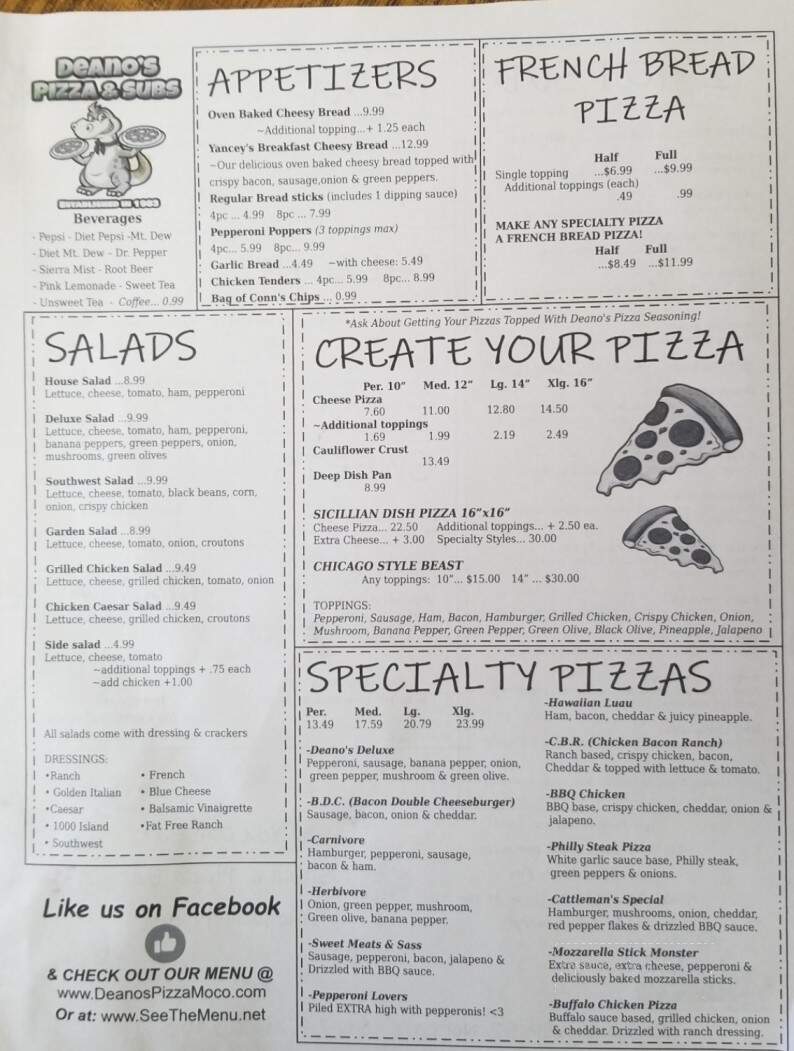 DeANO'S
PIZZA & SUBS
ESTABLISHED IN 1993
Beverages
- Pepsi - Diet Pepsi -Mt. Dew
- Diet Mt. Dew - Dr. Pepper
- Sierra Mist - Root Beer
- Pink Lemonade - Sweet Tea
- Unsweet Tea - Coffee... 0.99
APPETIZERS
Oven Baked Cheesy Bread ...9.99
~Additional topping...+ 1.25 each
Yancey's Breakfast Cheesy Bread ...12.99
~Our delicious oven baked cheesy bread topped with
crispy bacon, sausage,onion & green peppers.
Regular Bread sticks (includes 1 dipping sauce)
4pc ... 4.99 8pc ... 7.99
Pepperoni Poppers (3 toppings max)
4pc... 5.99 8pc... 9.99
Garlic Bread ...4.49 ~with cheese: 5.49
Chicken Tenders ... 4pc... 5.99 8pc... 8.99
Bag of Conn's Chips ... 0.99
FRENCH BREAD
PIZZA
Half Full
Single topping ...$6.99 ...$9.99
Additional toppings (each)
.49 .99
MAKE ANY SPECIALTY PIZZA
A FRENCH BREAD PIZZA!
Half Full
...$8.49 ...$11.99
SALADS
House Salad ...8.99
Lettuce, cheese, tomato, ham, pepperoni
Deluxe Salad ...9.99
Lettuce, cheese, tomato, ham, pepperoni,
banana peppers, green peppers, onion,
mushrooms, green olives
Southwest Salad ...9.99
Lettuce, cheese, tomato, black beans, corn,
onion, crispy chicken
Garden Salad ...8.99
Lettuce, cheese, tomato, onion, croutons
Grilled Chicken Salad ...9.49
Lettuce, cheese, grilled chicken, tomato, onion
Chicken Caesar Salad ...9.49
Lettuce, cheese, grilled chicken, croutons
Side salad ...4.99
Lettuce, cheese, tomato
~additional toppings + .75 each
~add chicken +1.00
All salads come with dressing & crackers
DRESSINGS:
•Ranch • French
• Golden Italian • Blue Cheese
•Caesar • Balsamic Vinaigrette
• 1000 Island •Fat Free Ranch
• Southwest
*Ask About Getting Your Pizzas Topped With Deano's Pizza Seasoning!
CREATE YOUR PIZZA
Per. 10" Med. 12" Lg. 14" Xlg. 16"
Cheese Pizza
7.60 11.00 12.80 14.50
~Additional toppings
1.69 1.99 2.19 2.49
Cauliflower Crust
13.49
Deep Dish Pan
8.99
SICILLIAN DISH PIZZA 16"x16"
Cheese Pizza... 22.50 Additional toppings... + 2.50 ea.
Extra Cheese... + 3.00 Specialty Styles... 30.00
CHICAGO STYLE BEAST
Any toppings: 10"... $15.00 14" ... $30.00
TOPPINGS:
Pepperoni, Sausage, Ham, Bacon, Hamburger, Grilled Chicken, Crispy Chicken, Onion,
Mushroom, Banana Pepper, Green Pepper, Green Olive, Black Olive, Pineapple, Jalapeno
SPECIALTY PIZZAS
Per. Med. Lg. Xlg.
13.49 17.59 20.79 23.99
-Deano's Deluxe
Pepperoni, sausage, banana pepper, onion,
green pepper, mushroom & green olive.
-B.D.C. (Bacon Double Cheeseburger)
Sausage, bacon, onion & cheddar.
-Carnivore
Hamburger, pepperoni, sausage,
bacon & ham.
-Herbivore
Onion, green pepper, mushroom,
Green olive, banana pepper.
-Sweet Meats & Sass
Sausage, pepperoni, bacon, jalapeno &
Drizzled with BBQ sauce.
-Pepperoni Lovers
Piled EXTRA high with pepperonis! <3
-Hawaiian Luau
Ham, bacon, cheddar & juicy pineapple.
-C.B.R. (Chicken Bacon Ranch)
Ranch based, crispy chicken, bacon,
Cheddar & topped with lettuce & tomato.
-BBQ Chicken
BBQ base, crispy chicken, cheddar, onion &
jalapeno.
-Philly Steak Pizza
White garlic sauce base, Philly steak,
green peppers & onions.
-Cattleman's Special
Hamburger, mushrooms, onion, cheddar,
red pepper flakes & drizzled BBQ sauce.
-Mozzarella Stick Monster
Extra sauce, extra cheese, pepperoni &
deliciously baked mozzarella sticks.
-Buffalo Chicken Pizza
Buffalo sauce based, grilled chicken, onion
& cheddar. Drizzled with ranch dressing.
Like us on Facebook
& CHECK OUT OUR MENU @
www.DeanosPizzaMoco.com
Or at: www.SeeTheMenu.net